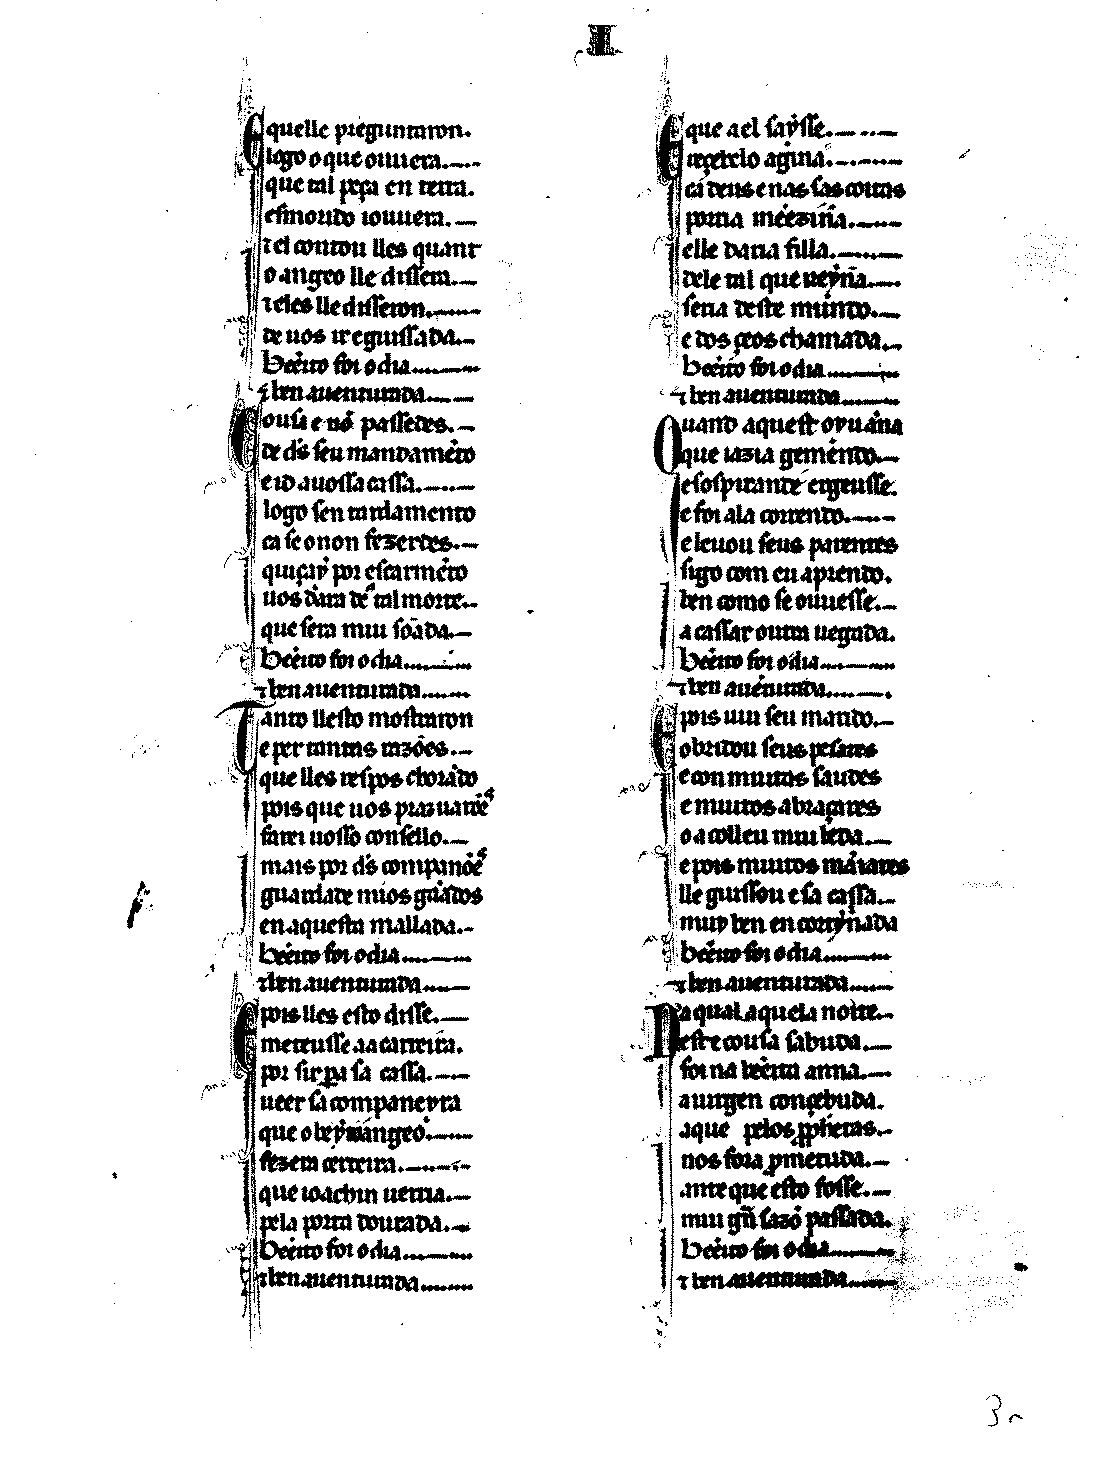 I
E quelle preguntaron.
logo o que ouuera.
que tal peça en terra.
esmondo iouuera.
⁊ el contou lles quant
o angeo lle dissera.
⁊ eles lle disseron.
de uos ir eguissada.
Bẽeito foi o dia
⁊ ben auenturada
Cousa e nõ passedes.
de dỹs seu mandamẽto
e id a uossa cassa.
logo sen tardamento
ca se o non fezerdes.
quiçay por escarmẽto
uos dara de tal morte.
que sera mui sõada.
Bẽeito foi o dia
⁊ ben auenturada
Tanto llesto mostraron
e per tantas razões.
que lles respos chorãdo
pois que uos praz uarões
farei uosso consello.
mais por dỹs companões
guardade mios gãados
en aquesta mallada.
Bẽeito foi o dia
⁊ ben auenturada
E pois lles esto disse.
meteusse aa carreira.
por sir pa sa cassa.
ueer sa companeyra
que o bẽyto angeo.
fezera certeira.
que ioachin uerria.
pela porta dourada.
Bẽeito foi o dia
⁊ ben auenturada
E que a el saysse.
reçebelo agina.
ca deus enas sas coitas
poria mẽezina.
elle daria filla.
dele tal que reyna.
seria deste mundo.
e dos çeos chamada.
Bẽeito foi o dia
⁊ ben auenturada
Quand aquest oyu ãna
que iazia gemendo.
e sospirante ergeusse.
e foi ala correndo.
e leuou seus parentes
sigo com eu aprendo.
ben como se ouuesse.
a cassar outra uegada.
Bẽeito foi o dia
⁊ ben auẽturada
E pois uiu seu marido.
obridou seus pesares
e con muitas saudes
e muitos abraçares
o acolleu mui leda.
e pois muitos mãiares
lle guissou e sa cassa.
muy ben encortỹnada
Bẽeito foi o dia
⁊ ben auenturada
Na qual aquela noite.
est e cousa sabuda.
foi na bẽeita anna.
a uirgen conçebuda.
a que pelos pphetas.
nos fora pmetuda.
ante que esto fosse.
mui grã sazõ passada.
Bẽeito foi o dia
⁊ ben auenturada
3r